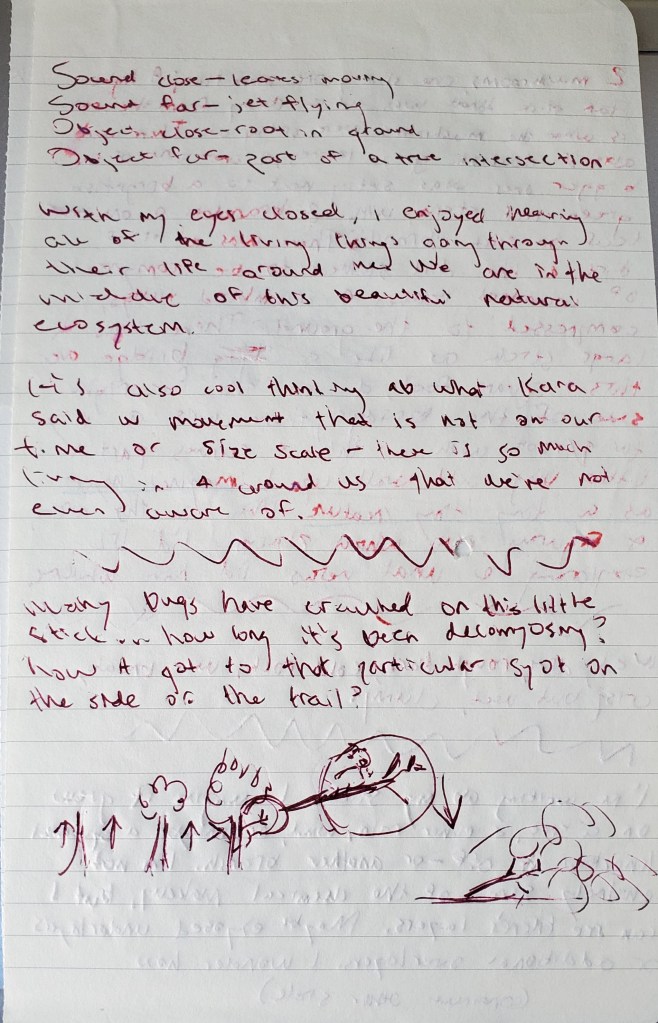 Sound close - leaves moving
Sound far - jet flying
Object close - root in ground
Object far - part of a tree intersection
With my eyes closed, I enjoyed hearing
all of the living things going through
their life around me. We are in the
middle of this beautiful natural
ecosystem.
It's also cool thinking ab what Kara
said w movement that is not on our
time or size scale - there is so much
living in & around us that we're not
even aware of.
Many bugs have crawled on this little
stick... how long it's been decomposing?
how it got to that particular spot on
the side of the trail?